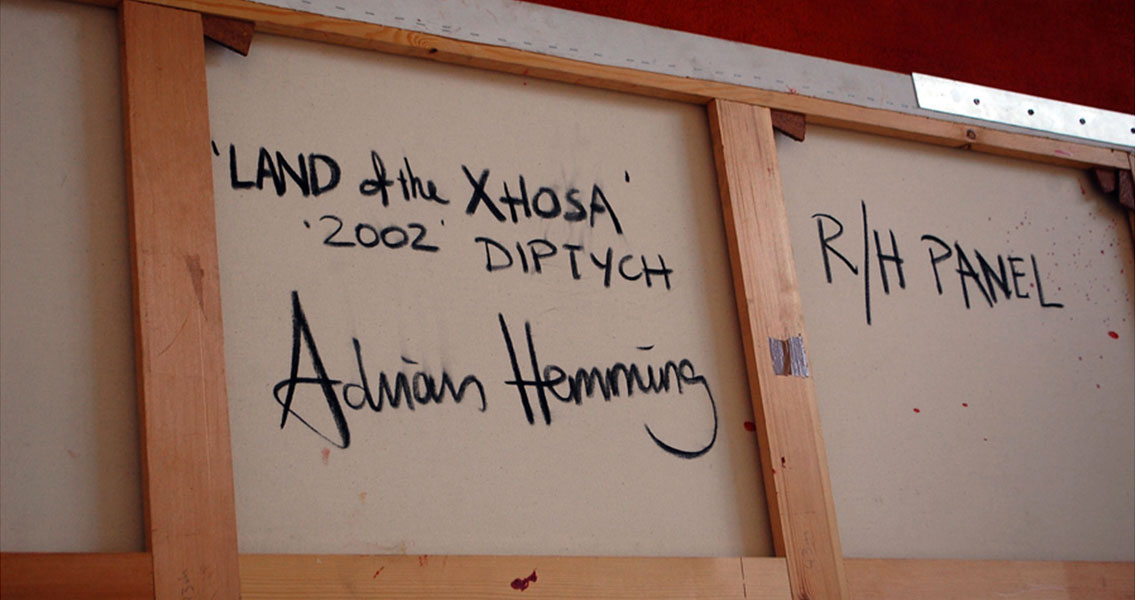 'LAND of the XHOSA'
'2002' DIPTYCH
Adrian Hemming
R/H PANEL